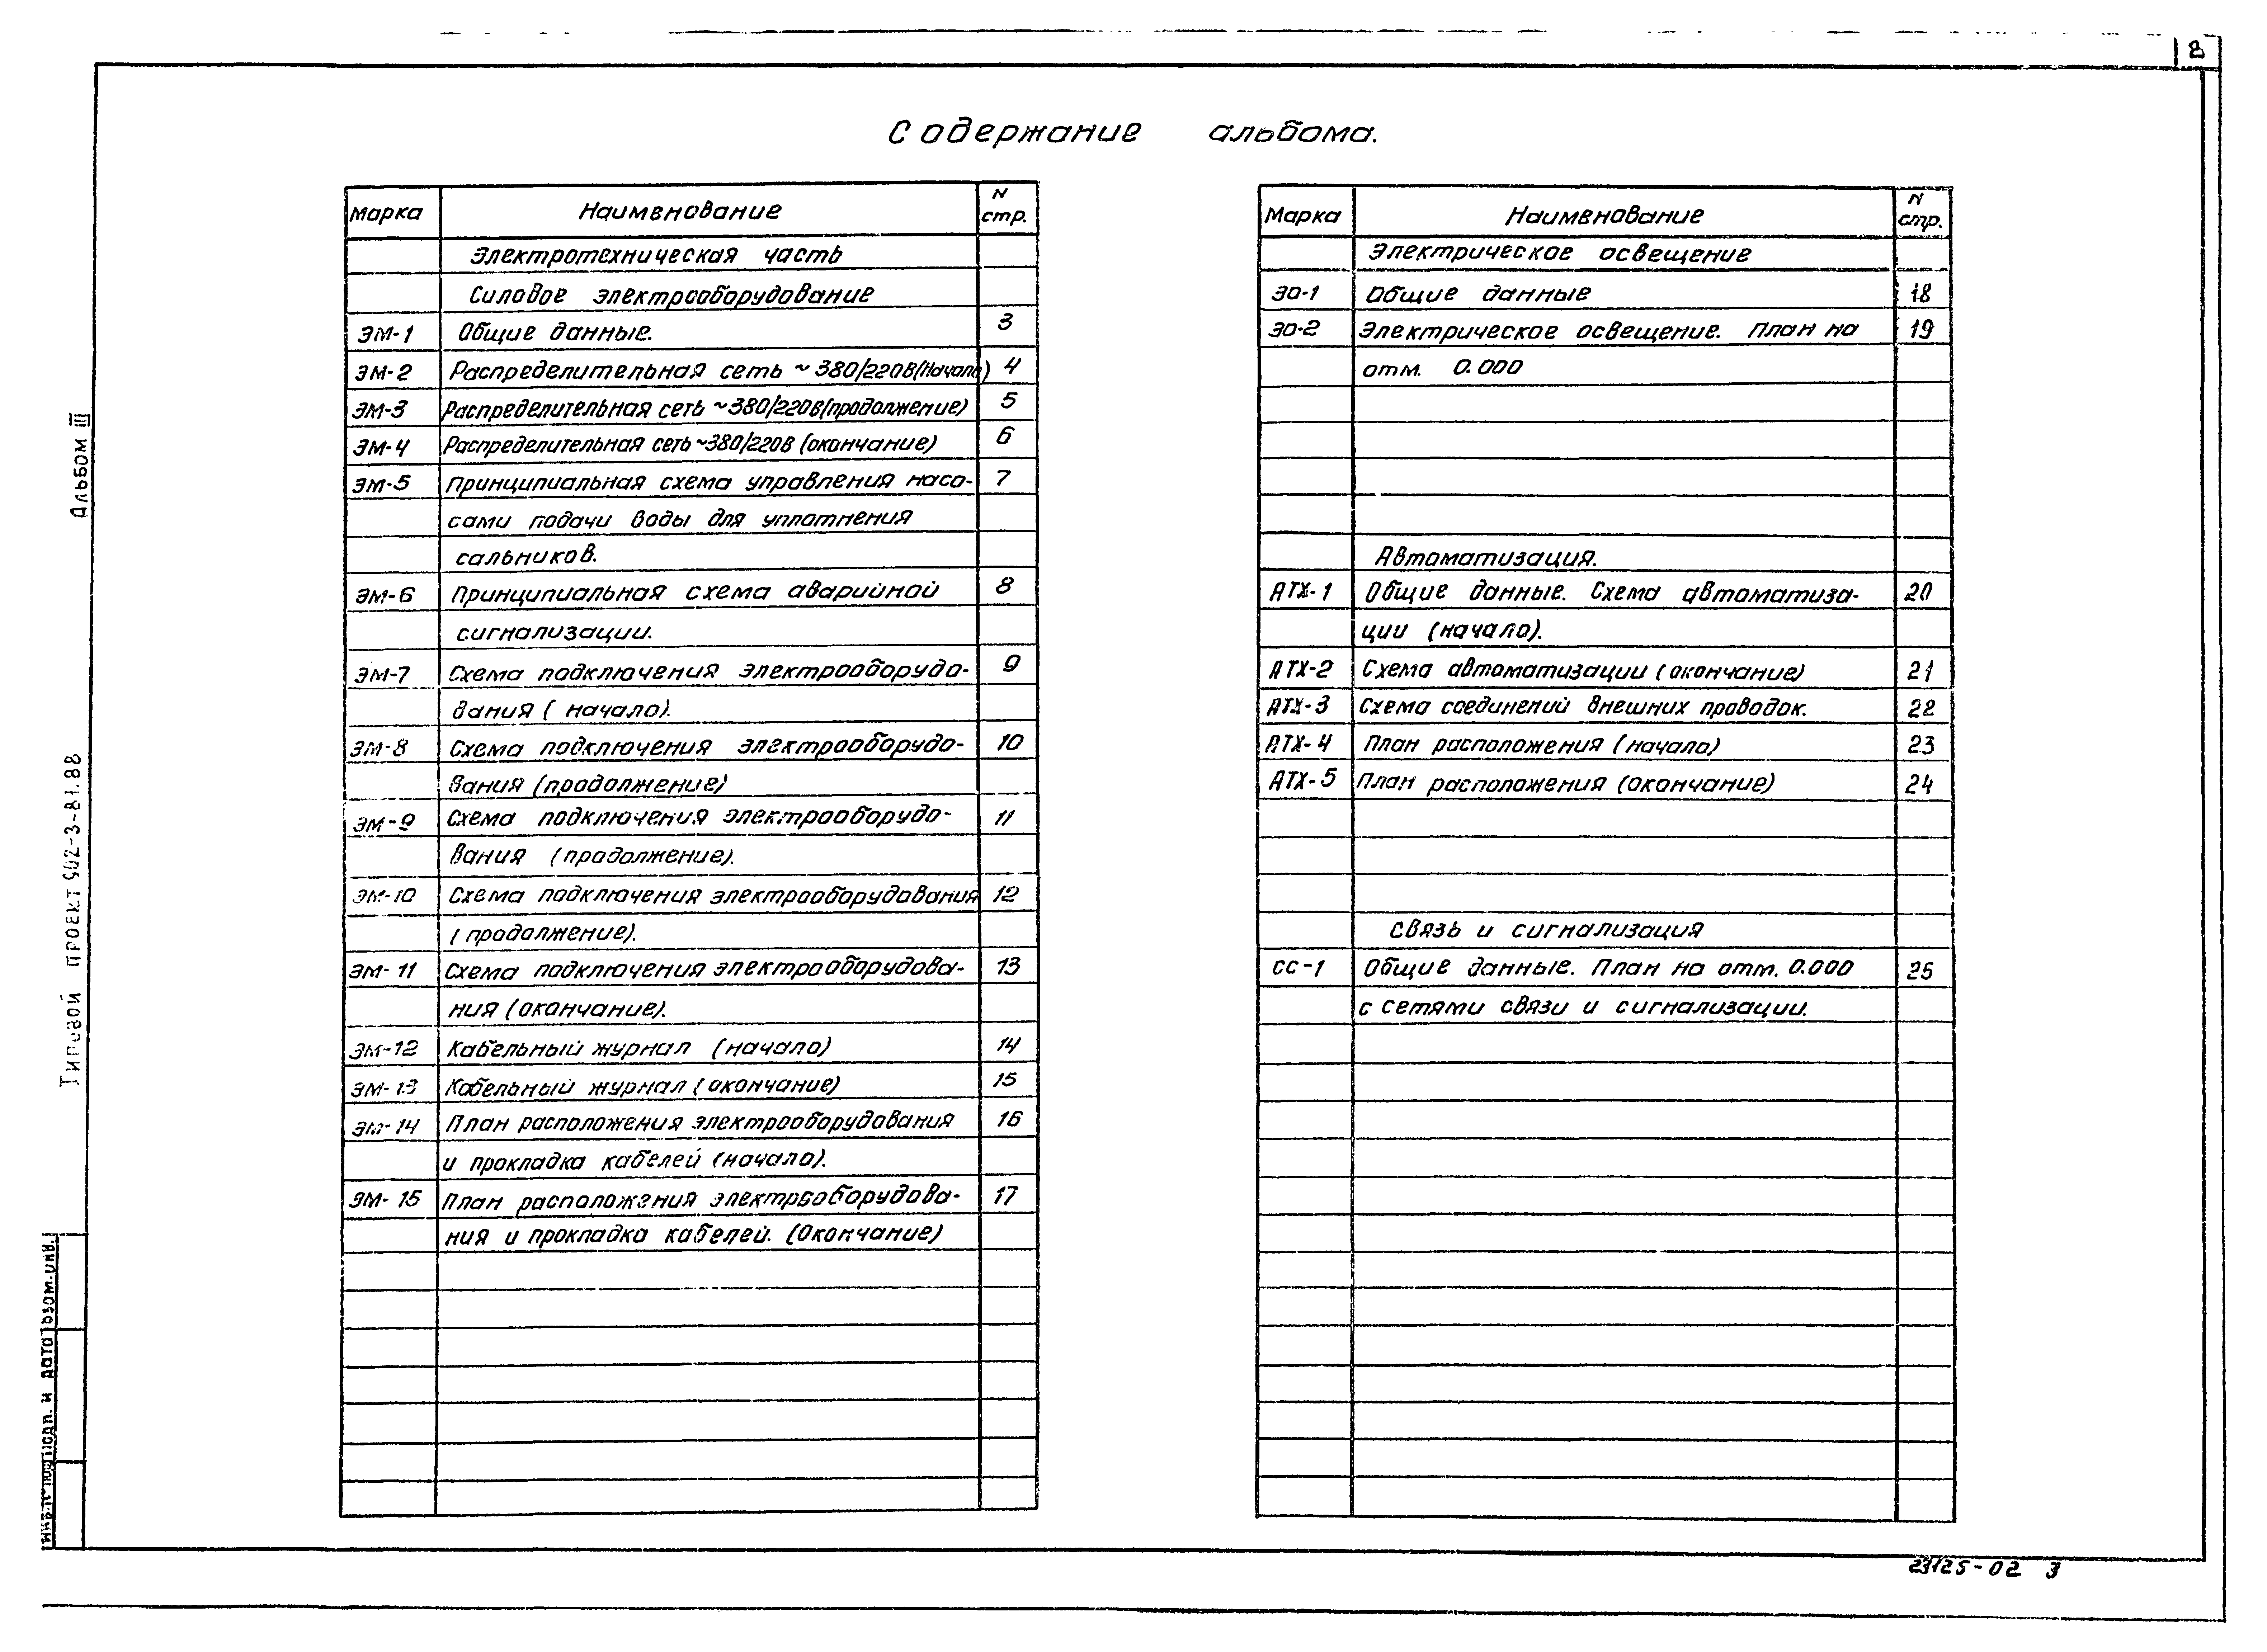 8
Содержание альбома.
Марка Наименование N стр.
Электротехническая часть
Силовое электрооборудование
ЭМ-1 Общие данные. 3
ЭМ-2 Распределительная сеть ~380/220В(Начало) 4
ЭМ-3 Распределительная сеть ~380/220В(продолжение) 5
ЭМ-4 Распределительная сеть ~380/220В (окончание) 6
ЭМ-5 Принципиальная схема управления насо- 7
сами подачи воды для уплотнения
сальников.
ЭМ-6 Принципиальная схема аварийной 8
сигнализации.
ЭМ-7 Схема подключения электрооборудо- 9
вания (начало).
ЭМ-8 Схема подключения электрооборудо- 10
вания (продолжение)
ЭМ-9 Схема подключения электрооборудо- 11
вания (продолжение).
ЭМ-10 Схема подключения электрооборудования 12
(продолжение).
ЭМ-11 Схема подключения электрооборудова- 13
ния (окончание).
ЭМ-12 Кабельный журнал (начало) 14
ЭМ-13 Кабельный журнал (окончание) 15
ЭМ-14 План расположения электрооборудования 16
и прокладка кабелей (начало).
ЭМ-15 План расположения электрооборудова- 17
ния и прокладка кабелей. (Окончание)
Марка Наименование N стр.
Электрическое освещение
ЭО-1 Общие данные 18
ЭО-2 Электрическое освещение. План на 19
отм. 0.000
Автоматизация.
АТХ-1 Общие данные. Схема автоматиза- 20
ции (начало).
АТХ-2 Схема автоматизации (окончание) 21
АТХ-3 Схема соединений внешних проводок. 22
АТХ-4 План расположения (начало) 23
АТХ-5 План расположения (окончание) 24
Связь и сигнализация
СС-1 Общие данные. План на отм. 0.000 25
с сетями связи и сигнализации.
Альбом III
Типовой проект 902-3-81.88
Инв.N подл. Подп. и дата Взам.инв.
23125-02 3